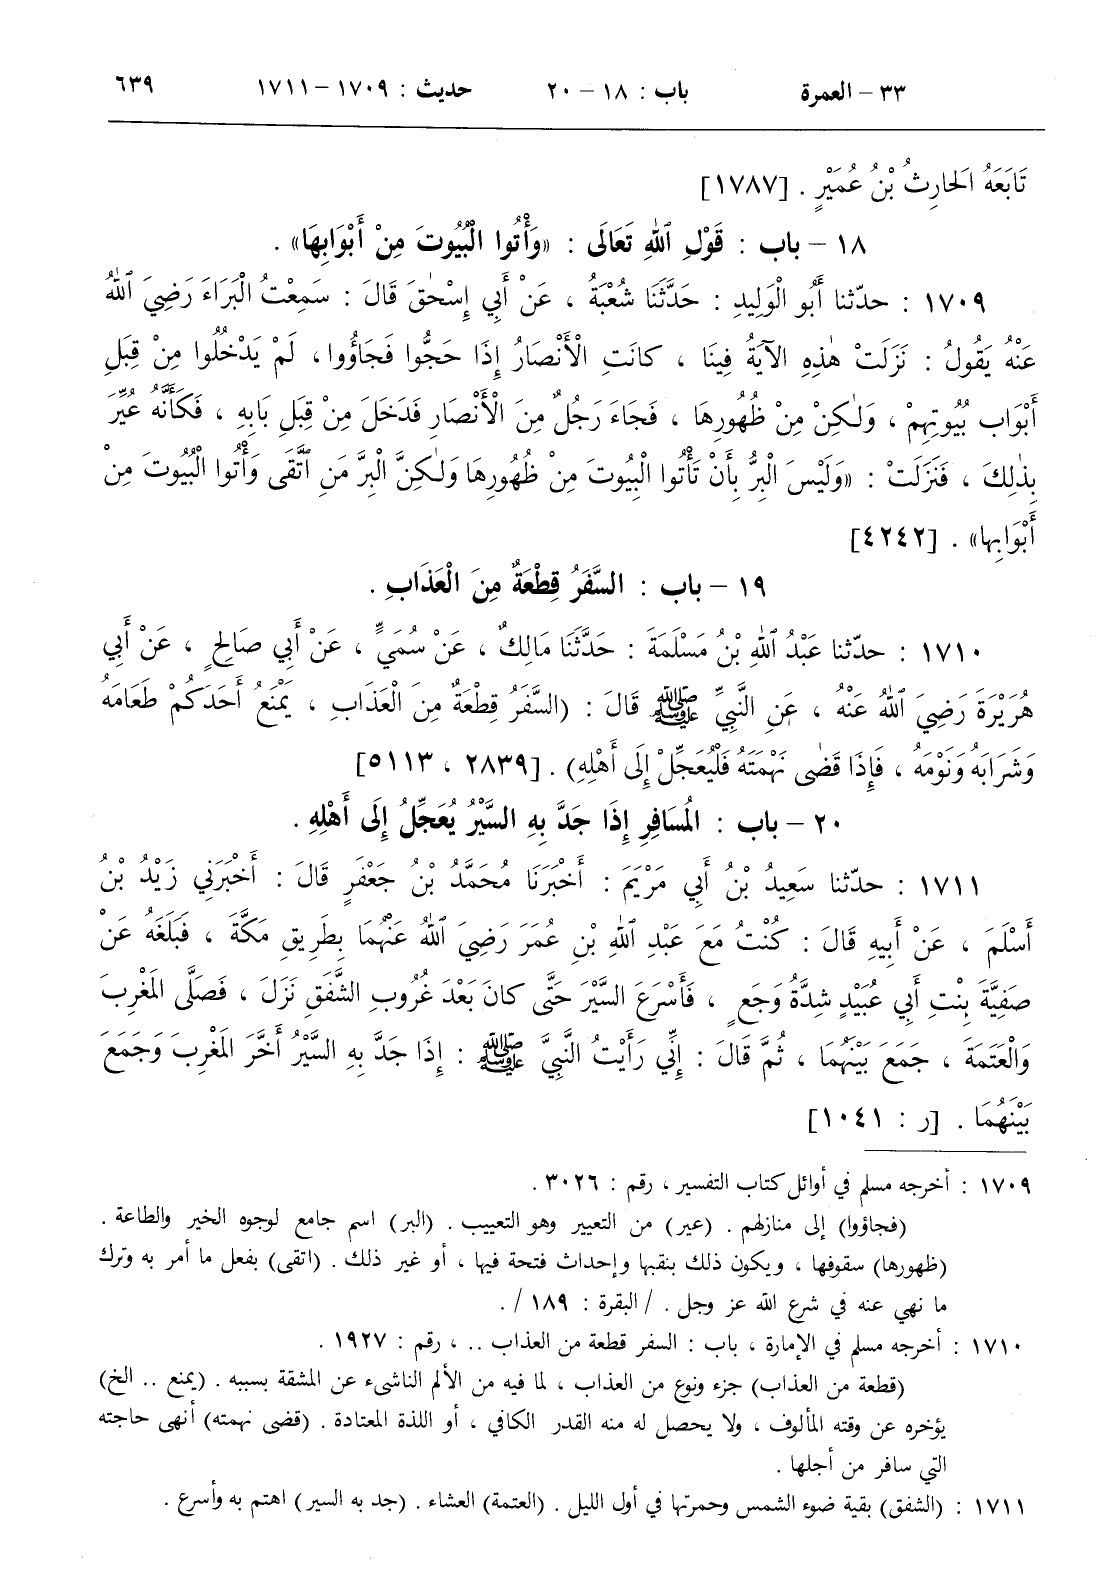 ٣٣ – العمرة باب : ١٨ – ٢٠ حديث : ١٧٠٩ – ١٧١١ ٦٣٩
تَابَعَهُ الحَارِثُ بْنُ عُمَيْرٍ . [١٧٨٧]
١٨ – باب : قَوْلِ ٱللهِ تَعَالَى : «وَأْتُوا الْبُيُوتَ مِنْ أَبْوَابِهَا» .
١٧٠٩ : حدّثنا أَبُو الْوَلِيدِ : حَدَّثَنَا شُعْبَةُ ، عَنْ أَبِي إِسْحٰقَ قَالَ : سَمِعْتُ الْبَرَاءَ رَضِيَ ٱللهُ
عَنْهُ يَقُولُ : نَزَلَتْ هٰذِهِ الآيَةُ فِينَا ، كانَتِ الْأَنْصَارُ إِذَا حَجُّوا فَجَاؤُوا ، لَمْ يَدْخُلُوا مِنْ قِبَلِ
أَبْوَابِ بُيُوتِهِمْ ، وَلٰكِنْ مِنْ ظُهُورِهَا ، فَجَاءَ رَجُلٌ مِنَ الْأَنْصَارِ فَدَخَلَ مِنْ قِبَلِ بَابِهِ ، فَكَأَنَّهُ عُيِّرَ
بِذٰلِكَ ، فَنَزَلَتْ : «وَلَيْسَ الْبِرُّ بِأَنْ تَأْتُوا الْبُيُوتَ مِنْ ظُهُورِهَا وَلٰكِنَّ الْبِرَّ مَنِ ٱتَّقَى وَأْتُوا الْبُيُوتَ مِنْ
أَبْوَابِها» . [٤٢٤٢]
١٩ – باب : السَّفَرُ قِطْعَةٌ مِنَ الْعَذَابِ .
١٧١٠ : حدّثنا عَبْدُ ٱللهِ بْنُ مَسْلَمَةَ : حَدَّثَنَا مَالِكٌ ، عَنْ سُمَيٍّ ، عَنْ أَبِي صَالِحٍ ، عَنْ أَبِي
هُرَيْرَةَ رَضِيَ ٱللهُ عَنْهُ ، عَنِ النَّبِيِّ ﷺ قَالَ : (السَّفَرُ قِطْعَةٌ مِنَ الْعَذَابِ ، يَمْنَعُ أَحَدَكُمْ طَعَامَهُ
وَشَرَابَهُ وَنَوْمَهُ ، فَإِذَا قَضٰى نَهْمَتَهُ فَلْيُعَجِّلْ إِلَى أَهْلِهِ) . [٢٨٣٩ ، ٥١١٣]
٢٠ – باب : المُسَافِرِ إِذَا جَدَّ بِهِ السَّيْرُ يُعَجِّلُ إِلَى أَهْلِهِ .
١٧١١ : حدّثنا سَعِيدُ بْنُ أَبِي مَرْيَمَ : أَخْبَرَنَا مُحَمَّدُ بْنُ جَعْفَرٍ قَالَ : أَخْبَرَنِي زَيْدُ بْنُ
أَسْلَمَ ، عَنْ أَبِيهِ قَالَ : كُنْتُ مَعَ عَبْدِ ٱللهِ بْنِ عُمَرَ رَضِيَ ٱللهُ عَنْهُمَا بِطَرِيقِ مَكَّةَ ، فَبَلَغَهُ عَنْ
صَفِيَّةَ بِنْتِ أَبِي عُبَيْدٍ شِدَّةُ وَجَعٍ ، فَأَسْرَعَ السَّيْرَ حَتَّى كانَ بَعْدَ غُرُوبِ الشَّفَقِ نَزَلَ ، فَصَلَّى المَغْرِبَ
وَالْعَتَمَةَ ، جَمَعَ بَيْنَهُمَا ، ثُمَّ قَالَ : إِنِّي رَأَيْتُ النَّبِيَّ ﷺ : إِذَا جَدَّ بِهِ السَّيْرُ أَخَّرَ المَغْرِبَ وَجَمَعَ
بَيْنَهُمَا . [ر : ١٠٤١]
١٧٠٩ : أخرجه مسلم في أوائل كتاب التفسير ، رقم : ٣٠٢٦ .
(فجاؤوا) إلى منازلهم . (عير) من التعيير وهو التعييب . (البر) اسم جامع لوجوه الخير والطاعة .
(ظهورها) سقوفها ، ويكون ذلك بنقبها وإحداث فتحة فيها ، أو غير ذلك . (اتقى) بفعل ما أمر به وترك
ما نهي عنه في شرع الله عز وجل . / البقرة : ١٨٩ / .
١٧١٠ : أخرجه مسلم في الإمارة ، باب : السفر قطعة من العذاب .. ، رقم : ١٩٢٧ .
(قطعة من العذاب) جزء ونوع من العذاب ، لما فيه من الألم الناشىء عن المشقة بسببه . (يمنع .. الخ)
يؤخره عن وقته المألوف ، ولا يحصل له منه القدر الكافي ، أو اللذة المعتادة . (قضى نهمته) أنهى حاجته
التي سافر من أجلها .
١٧١١ : (الشفق) بقية ضوء الشمس وحمرتها في أول الليل . (العتمة) العشاء . (جد به السير) اهتم به وأسرع .